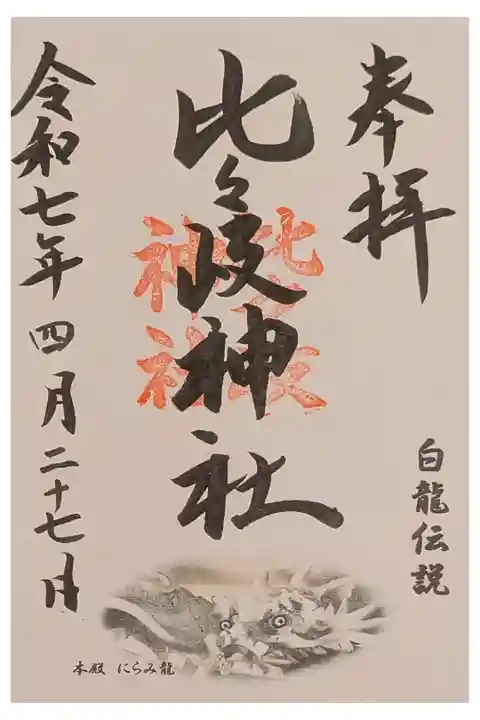 奉拝
白龍伝説
比々岐神社
比々岐
神社
令和七年四月二十七日
本殿 にらみ龍